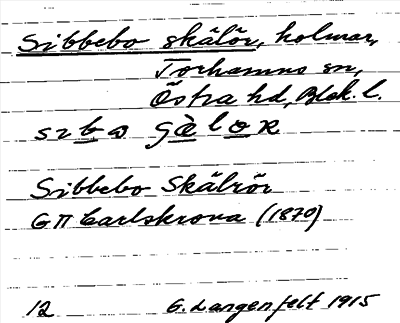 Sibbebo skälör, holmar,
Torhamns sn,
Östra hd, Blek. l.
Sibbebo Skälrör
G Π Carlskrona (1870)
12 G. Langenfelt 1915